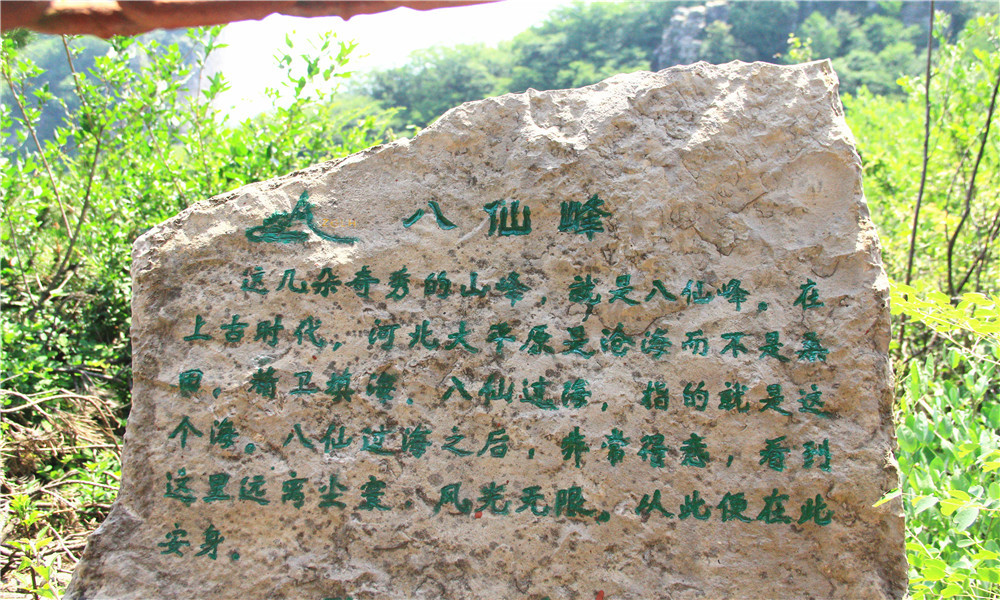 八仙峰
这几朵奇秀的山峰，就是八仙峰。在
上古时代，河北大平原是沧海而不是桑
田，精卫填海，八仙过海，指的就是这
个海。八仙过海之后，非常得意，看到
这里远离尘寰，风光无限，从此便在此
安身。